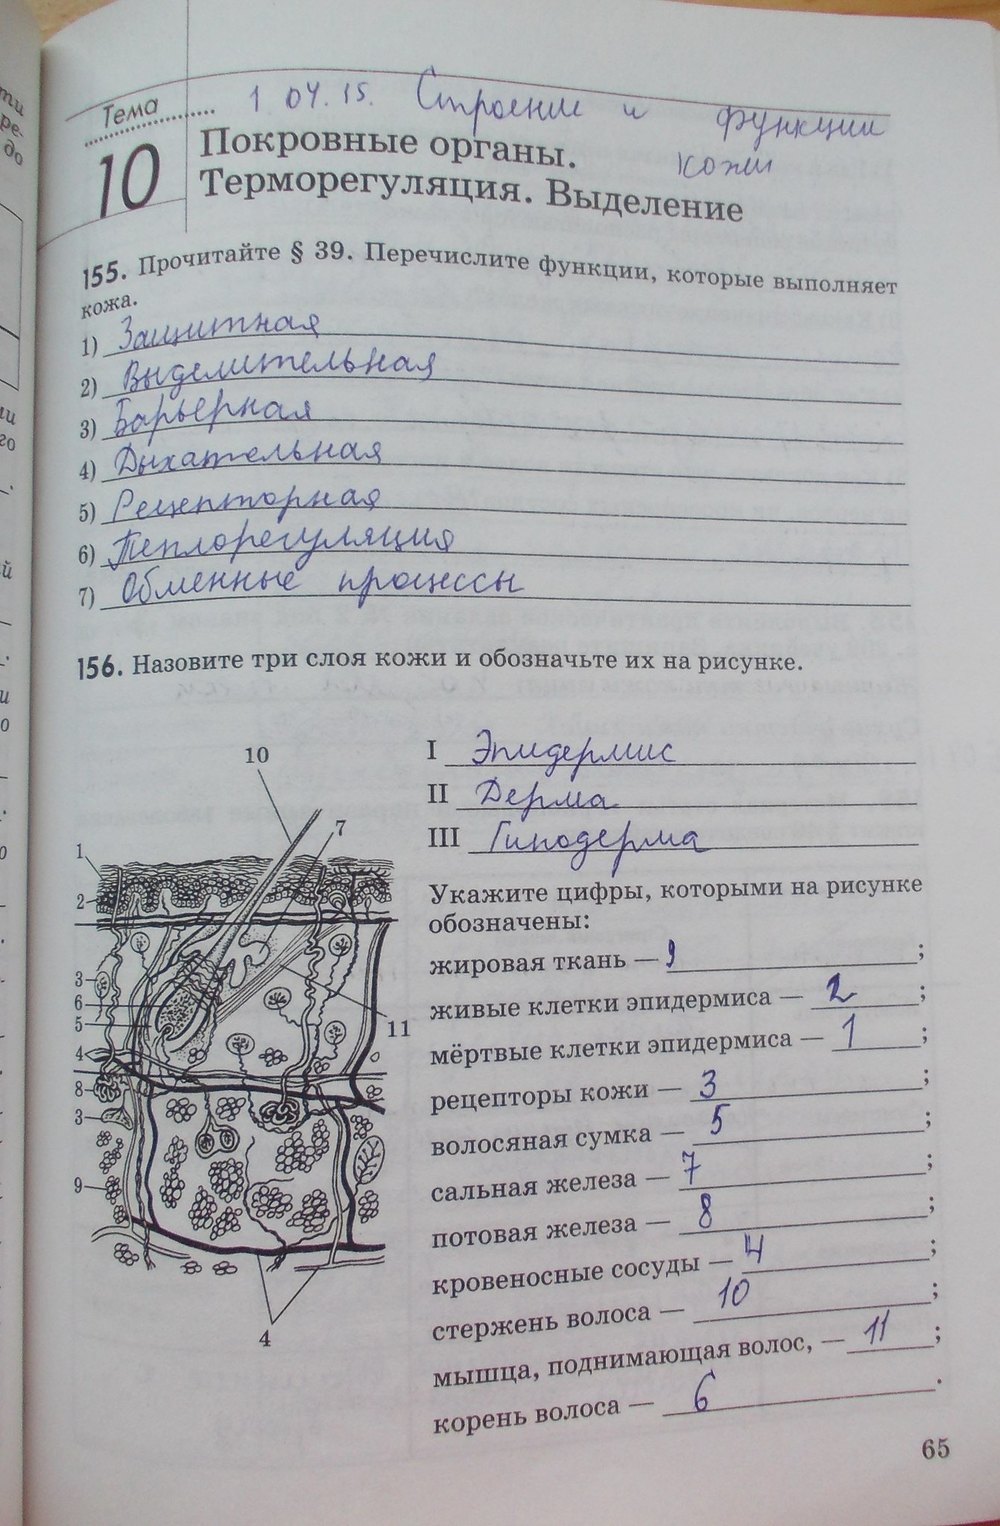 Тема
1 04.15. Строение и функции
кожи
10
Покровные органы.
Терморегуляция. Выделение
155. Прочитайте § 39. Перечислите функции, которые выполняет
кожа.
1) Защитная
2) Выделительная
3) Барьерная
4) Дыхательная
5) Рецепторная
6) Теплорегуляция
7) Обменные процессы
156. Назовите три слоя кожи и обозначьте их на рисунке.
I Эпидермис
II Дерма
III Гиподерма
Укажите цифры, которыми на рисунке
обозначены:
жировая ткань — 9;
живые клетки эпидермиса — 2;
мёртвые клетки эпидермиса — 1;
рецепторы кожи — 3;
волосяная сумка — 5;
сальная железа — 7;
потовая железа — 8;
кровеносные сосуды — 4;
стержень волоса — 10;
мышца, поднимающая волос, — 11;
корень волоса — 6.
10
7
1
2
3
6
5
11
4
8
3
9
4
65